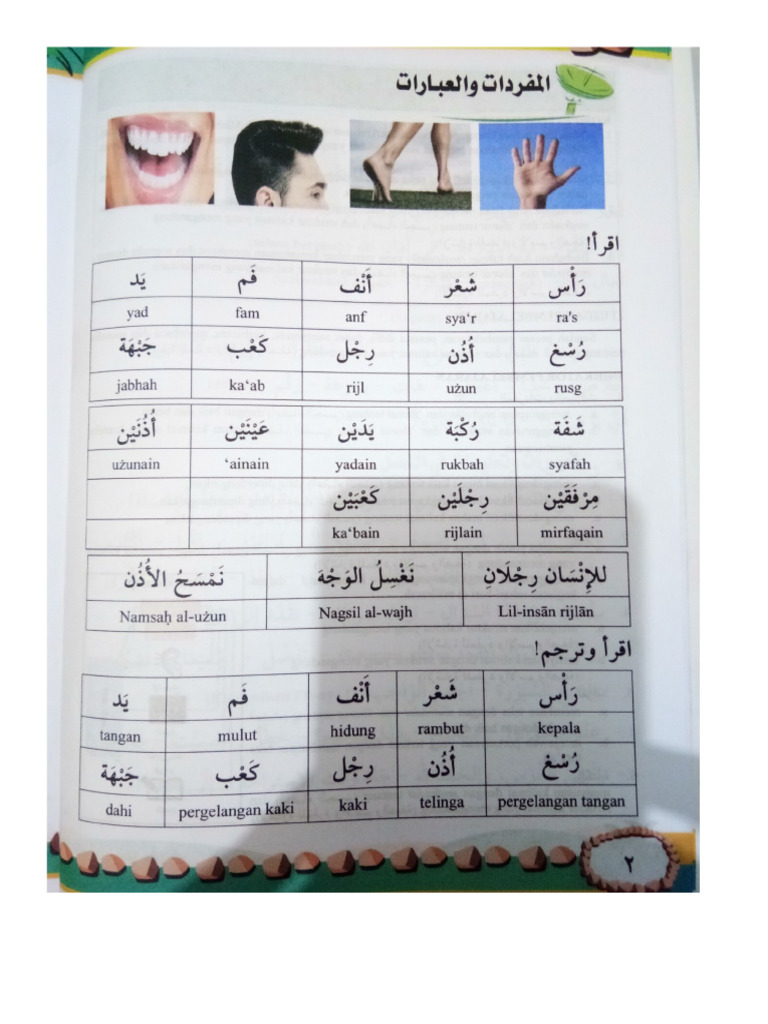 المفردات والعبارات
اقرأ!
رَأْس شَعْر أَنْف فَم يَد
ra's sya'r anf fam yad
رُسْغ أُذُن رِجْل كَعْب جَبْهَة
rusg użun rijl ka‘ab jabhah
شَفَة رُكْبَة يَدَيْن عَيْنَيْن أُذُنَيْن
syafah rukbah yadain ‘ainain użunain
مِرْفَقَيْن رِجْلَيْن كَعْبَيْن
mirfaqain rijlain ka‘bain
للإِنْسَان رِجْلَانِ نَغْسِلُ الوَجْهَ نَمْسَحُ الأُذُن
Lil-insān rijlān Nagsil al-wajh Namsaḥ al-użun
اقرأ وترجم!
رَأْس شَعْر أَنْف فَم يَد
kepala rambut hidung mulut tangan
رُسْغ أُذُن رِجْل كَعْب جَبْهَة
pergelangan tangan telinga kaki pergelangan kaki dahi
٢